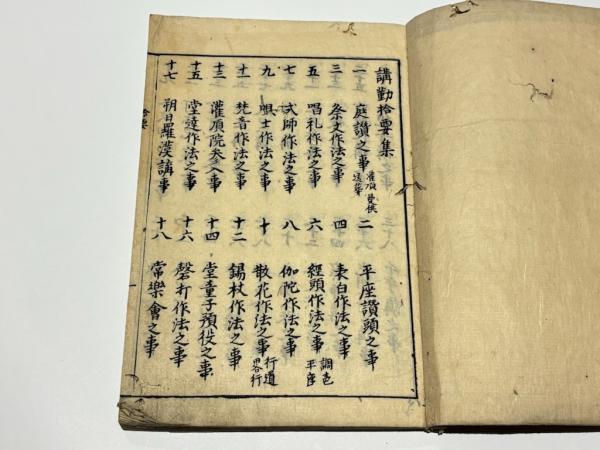 講勤拾要集
一 庭讃之事 灌頂 曼供 送葬
二 平座讃頭之事
三 祭文作法之事
四 表白作法之事
五 唱礼作法之事
六 經頭作法之事 調色 平座
七 式師作法之事
八 伽陀作法之事
九 唄士作法之事
十 散花作法之事 行道 畧行
十一 梵音作法之事
十二 錫杖作法之事
十三 灌頂院参入事
十四 堂童子預役之事
十五 堂達作法之事
十六 磬打作法之事
十七 朔日羅漢講事
十八 常樂會之事
拾要